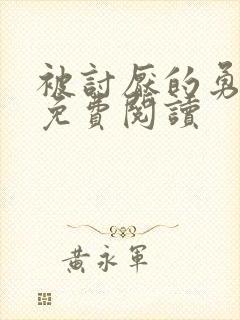 被討厭的勇
免費閱讀
黃永軍